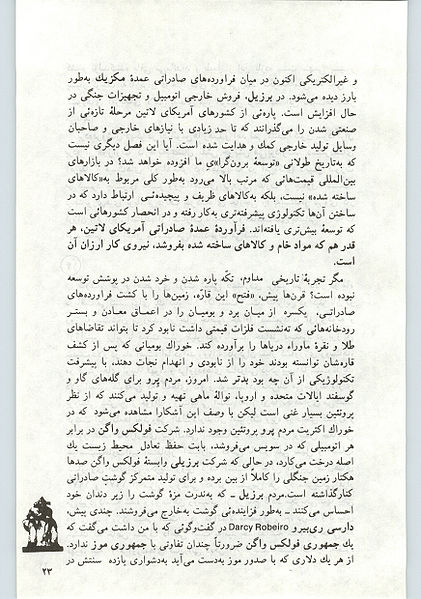 و غیرالکتریکی اکنون در میان فراورده‌های صادراتی عمدهٔ مکزیك به‌طور
بارز دیده می‌شود. در برزیل، فروش خارجی اتومبیل و تجهیزات جنگی در
حال افزایش است. پاره‌ئی از کشورهای آمریکای لاتین مرحلهٔ تازه‌ئی از
صنعتی شدن را می‌گذرانند که تا حد زیادی با نیازهای خارجی و صاحبان
وسایل تولید خارجی کمك و هدایت شده است. آیا این فصل دیگری نیست
که به‌تاریخ طولانی «توسعهٔ برون‌گرا»ی ما افزوده خواهد شد؟ در بازارهای
بین‌المللی قیمت‌هائی که مرتب بالا می‌رود به‌طور کلی مربوط به‌«کالاهای
ساخته شده» نیست، بلکه به‌کالاهای ظریف و پیچیده‌تـی ارتباط دارد که در
ساختن آن‌ها تکنولوژی پیشرفته‌تری به‌کار رفته و در انحصار کشورهائی است
که توسعهٔ بیش‌تری یافته‌اند. فرآوردهٔ عمدهٔ صادراتی آمریکای لاتین، هر
قدر هم که مواد خام و کالاهای ساخته شده بفروشد، نیروی کار ارزان آن
است.
مگر تجربهٔ تاریخی مداوم، تکّه پاره شدن و خرد شدن در پوشش توسعه
نبوده است؟ قرن‌ها پیش، «فتح» این قارّه، زمین‌ها را با کشت فراورده‌های
صادراتـی، یکسره از میان برد و بومیان را در اعمـاق معـادن و بستـر
رودخانه‌هائی که ته‌نشست فلزات قیمتی داشت نابود کرد تا بتواند تقاضاهای
طلا و نقرهٔ ماوراء دریاها را برآورده کند. خوراك بومیانی که پس از کشف
قاره‌شان توانسته بودند خود را از نابودی و انهدام نجات دهند، با پیشرفت
تکنولوژیکی از آن چه بود بدتر شد. امروز، مردم پرو برای گله‌های گاو و
گوسفند ایالات متحده و اروپا، نوالهٔ ماهی تهیه و تولید می‌کنند که از نظر
پروتئین بسیار غنی است لیکن با وصف این آشکارا مشاهده می‌شود که در
خوراك اکثریت مردم پرو پروتئین وجود ندارد. شرکت فولکس واگن در برابر
هر اتومبیلی که در سویس می‌فروشد، بابت حفظ تعادل محیط زیست یك
اصله درخت می‌کارد، در حالی که شرکت برزیلی وابستهٔ فولکس واگن صدها
هکتار زمین جنگلی را کاملاً از بین برده و برای تولید متمرکز گوشت صادراتی
کنارگذاشته است.مردم برزیل ــ که به‌ندرت مزهٔ گوشت را زیر دندان خود
احساس می‌کنند ــ به‌طور فزاینده‌ئی گوشت به‌خارج می‌فروشند. چندی پیش،
دارسی ری‌بیرو Darcy Robeiro در گفت‌وگوئی که با من داشت می‌گفت که
یك جمهوری فولکس واگن ضرورتاً چندان تفاوتی با جمهوری موز ندارد.
از هر یك دلاری که با صدور موز به‌دست می‌آید به‌دشواری یازده سنتش در
۲۳